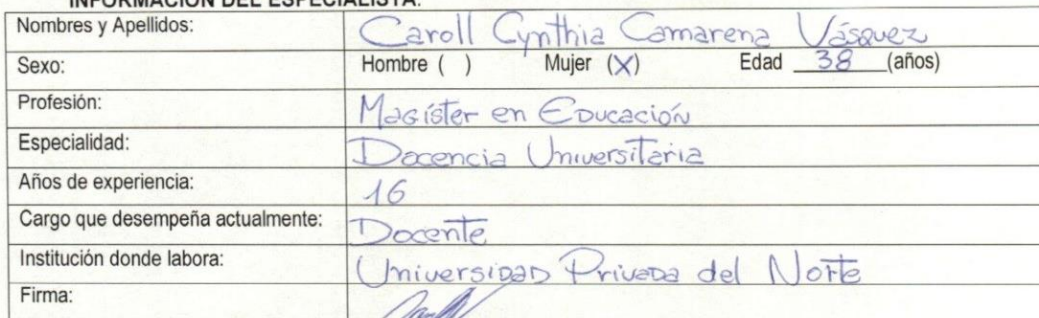 INFORMACIÓN DEL ESPECIALISTA:
Nombres y Apellidos: Caroll Cynthia Camarena Vásquez
Sexo: Hombre ( ) Mujer (X) Edad 38 (años)
Profesión: Magíster en Educación
Especialidad: Docencia Universitaria
Años de experiencia: 16
Cargo que desempeña actualmente: Docente
Institución donde labora: Universidad Privada del Norte
Firma: